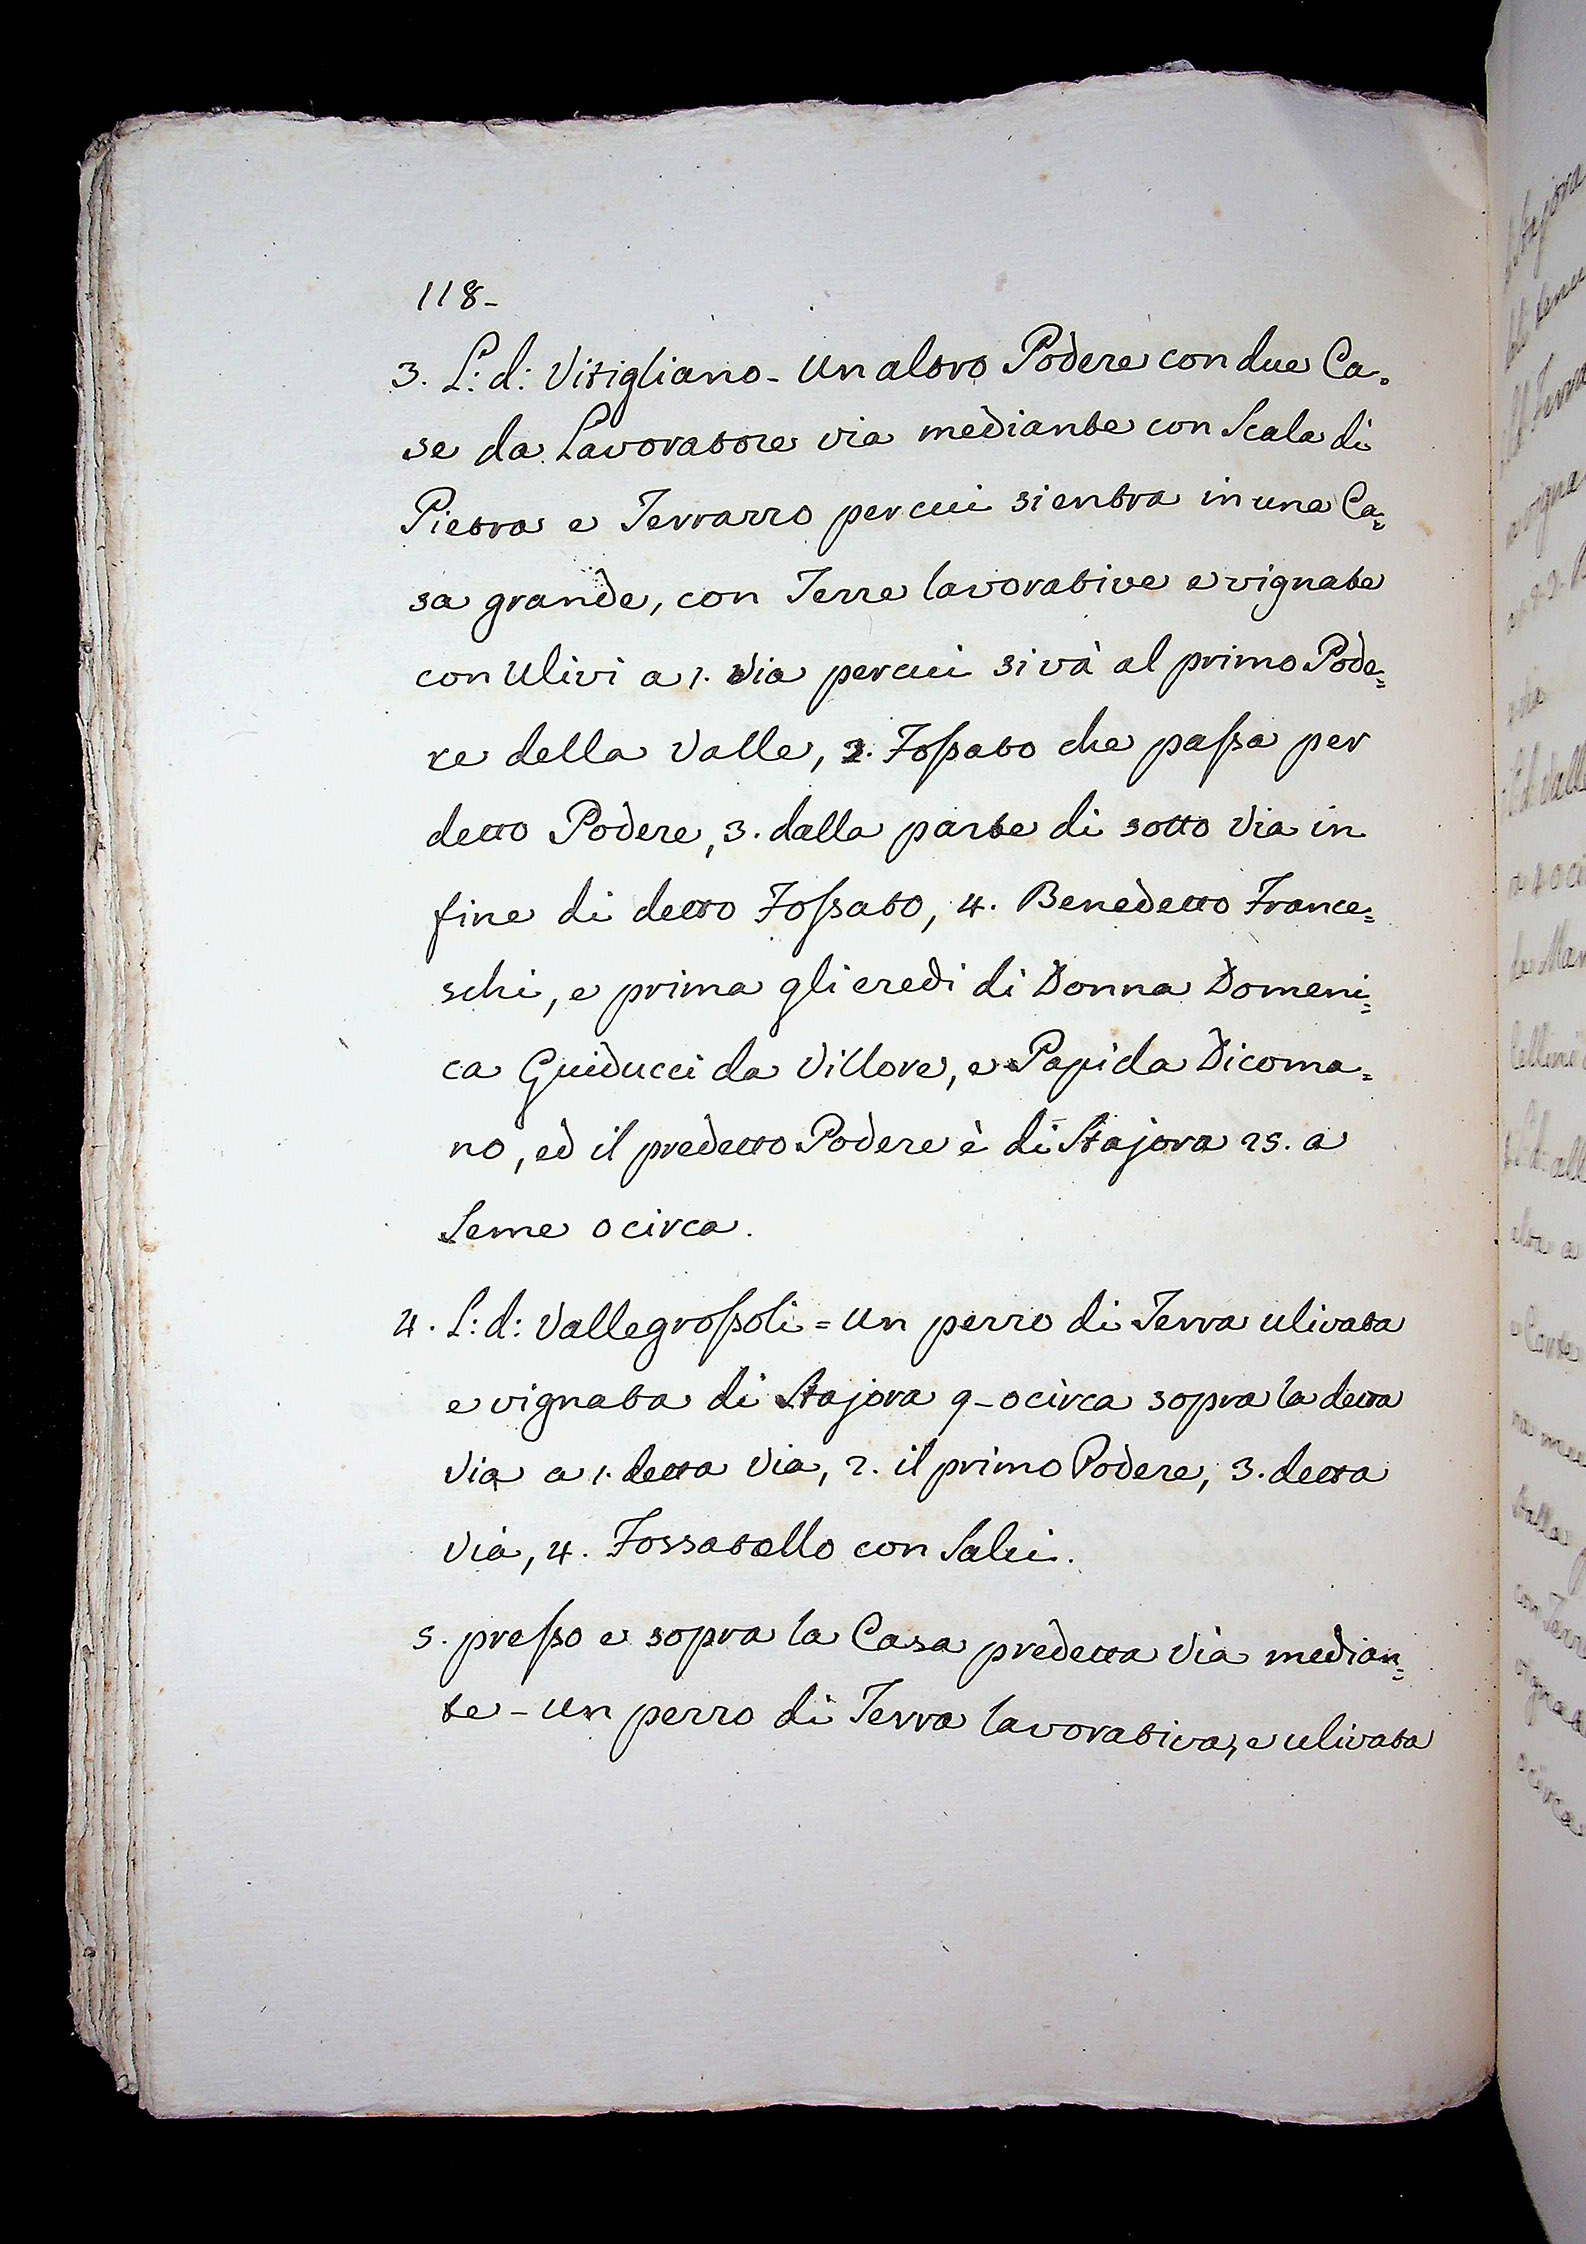 118-
3. L: d: Vitigliano - Un altro Podere con due Ca=
se da Lavoratore via mediante con Scala di
Pietra e Terrazzo per cui si entra in una Ca=
sa grande, con Terre lavorative e vignate
con Ulivi a 1. Via per cui si và al primo Pode=
re della Valle, 2. Fossato che passa per
detto Podere, 3. dalla parte di sotto Via in
fine di detto Fossato, 4. Benedetto France=
schi, e prima gli eredi di Donna Domeni=
ca Guiducci da Villore, e Papi da Dicoma=
no, ed il predetto Podere è di Stajora 25. a
Seme o circa.
4. L: d: Vallegrossoli = Un pezzo di Terra ulivata
e vignata di Stajora 9 - o circa sopra la detta
Via a 1. detta Via, 2. il primo Podere, 3. detta
Via, 4. Fossatello con Salci.
5. presso e sopra la Casa predetta Via median=
te - Un pezzo di Terra lavorativa, e ulivata